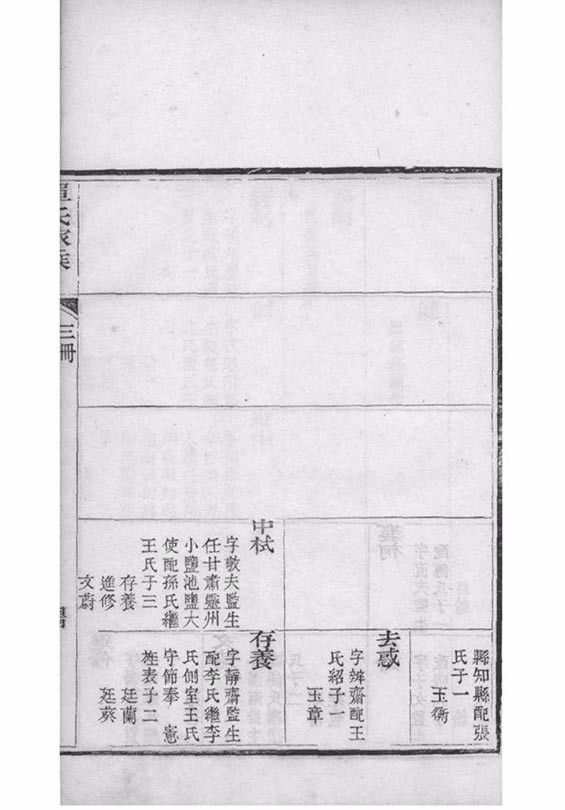 縣知縣配張
氏子一
玉衡
去惑
字辨齋配王
氏紹子一
玉章
中栻
字敬夫監生
任甘肅靈州
小鹽池鹽大
使配孫氏繼
王氏子三
存養
進修
文蔚
存養
字靜齋監生
配李氏繼李
氏側室王氏
守節奉憲
旌表子二
廷蘭
三冊